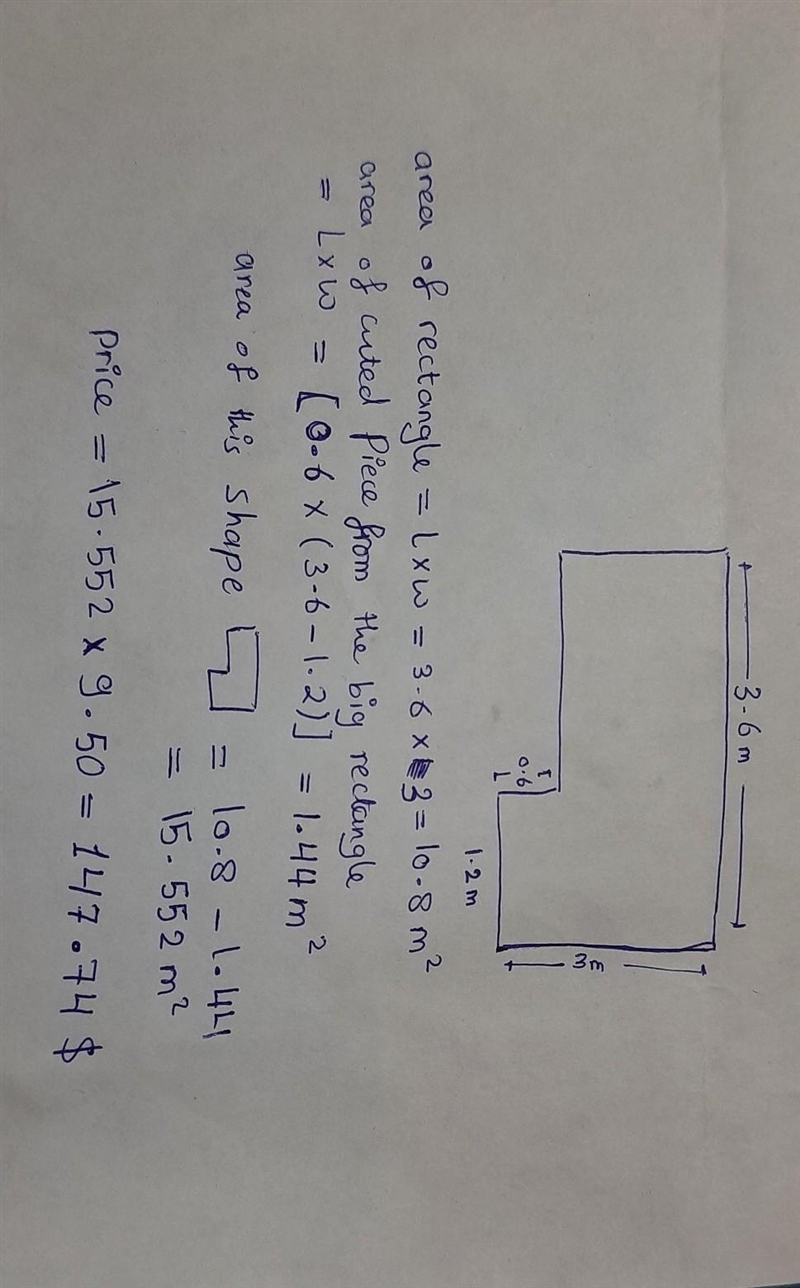 3.6 m
3m
0.6
1.2 m
area of rectangle = L x w = 3.6 x 3 = 10.8 m²
area of cuted Piece from the big rectangle
= L x w = [0.6 x (3.6 - 1.2)] = 1.44 m²
area of this shape = 10.8 - 1.44
= 15.552 m²
Price = 15.552 x 9.50 = 147.74 $